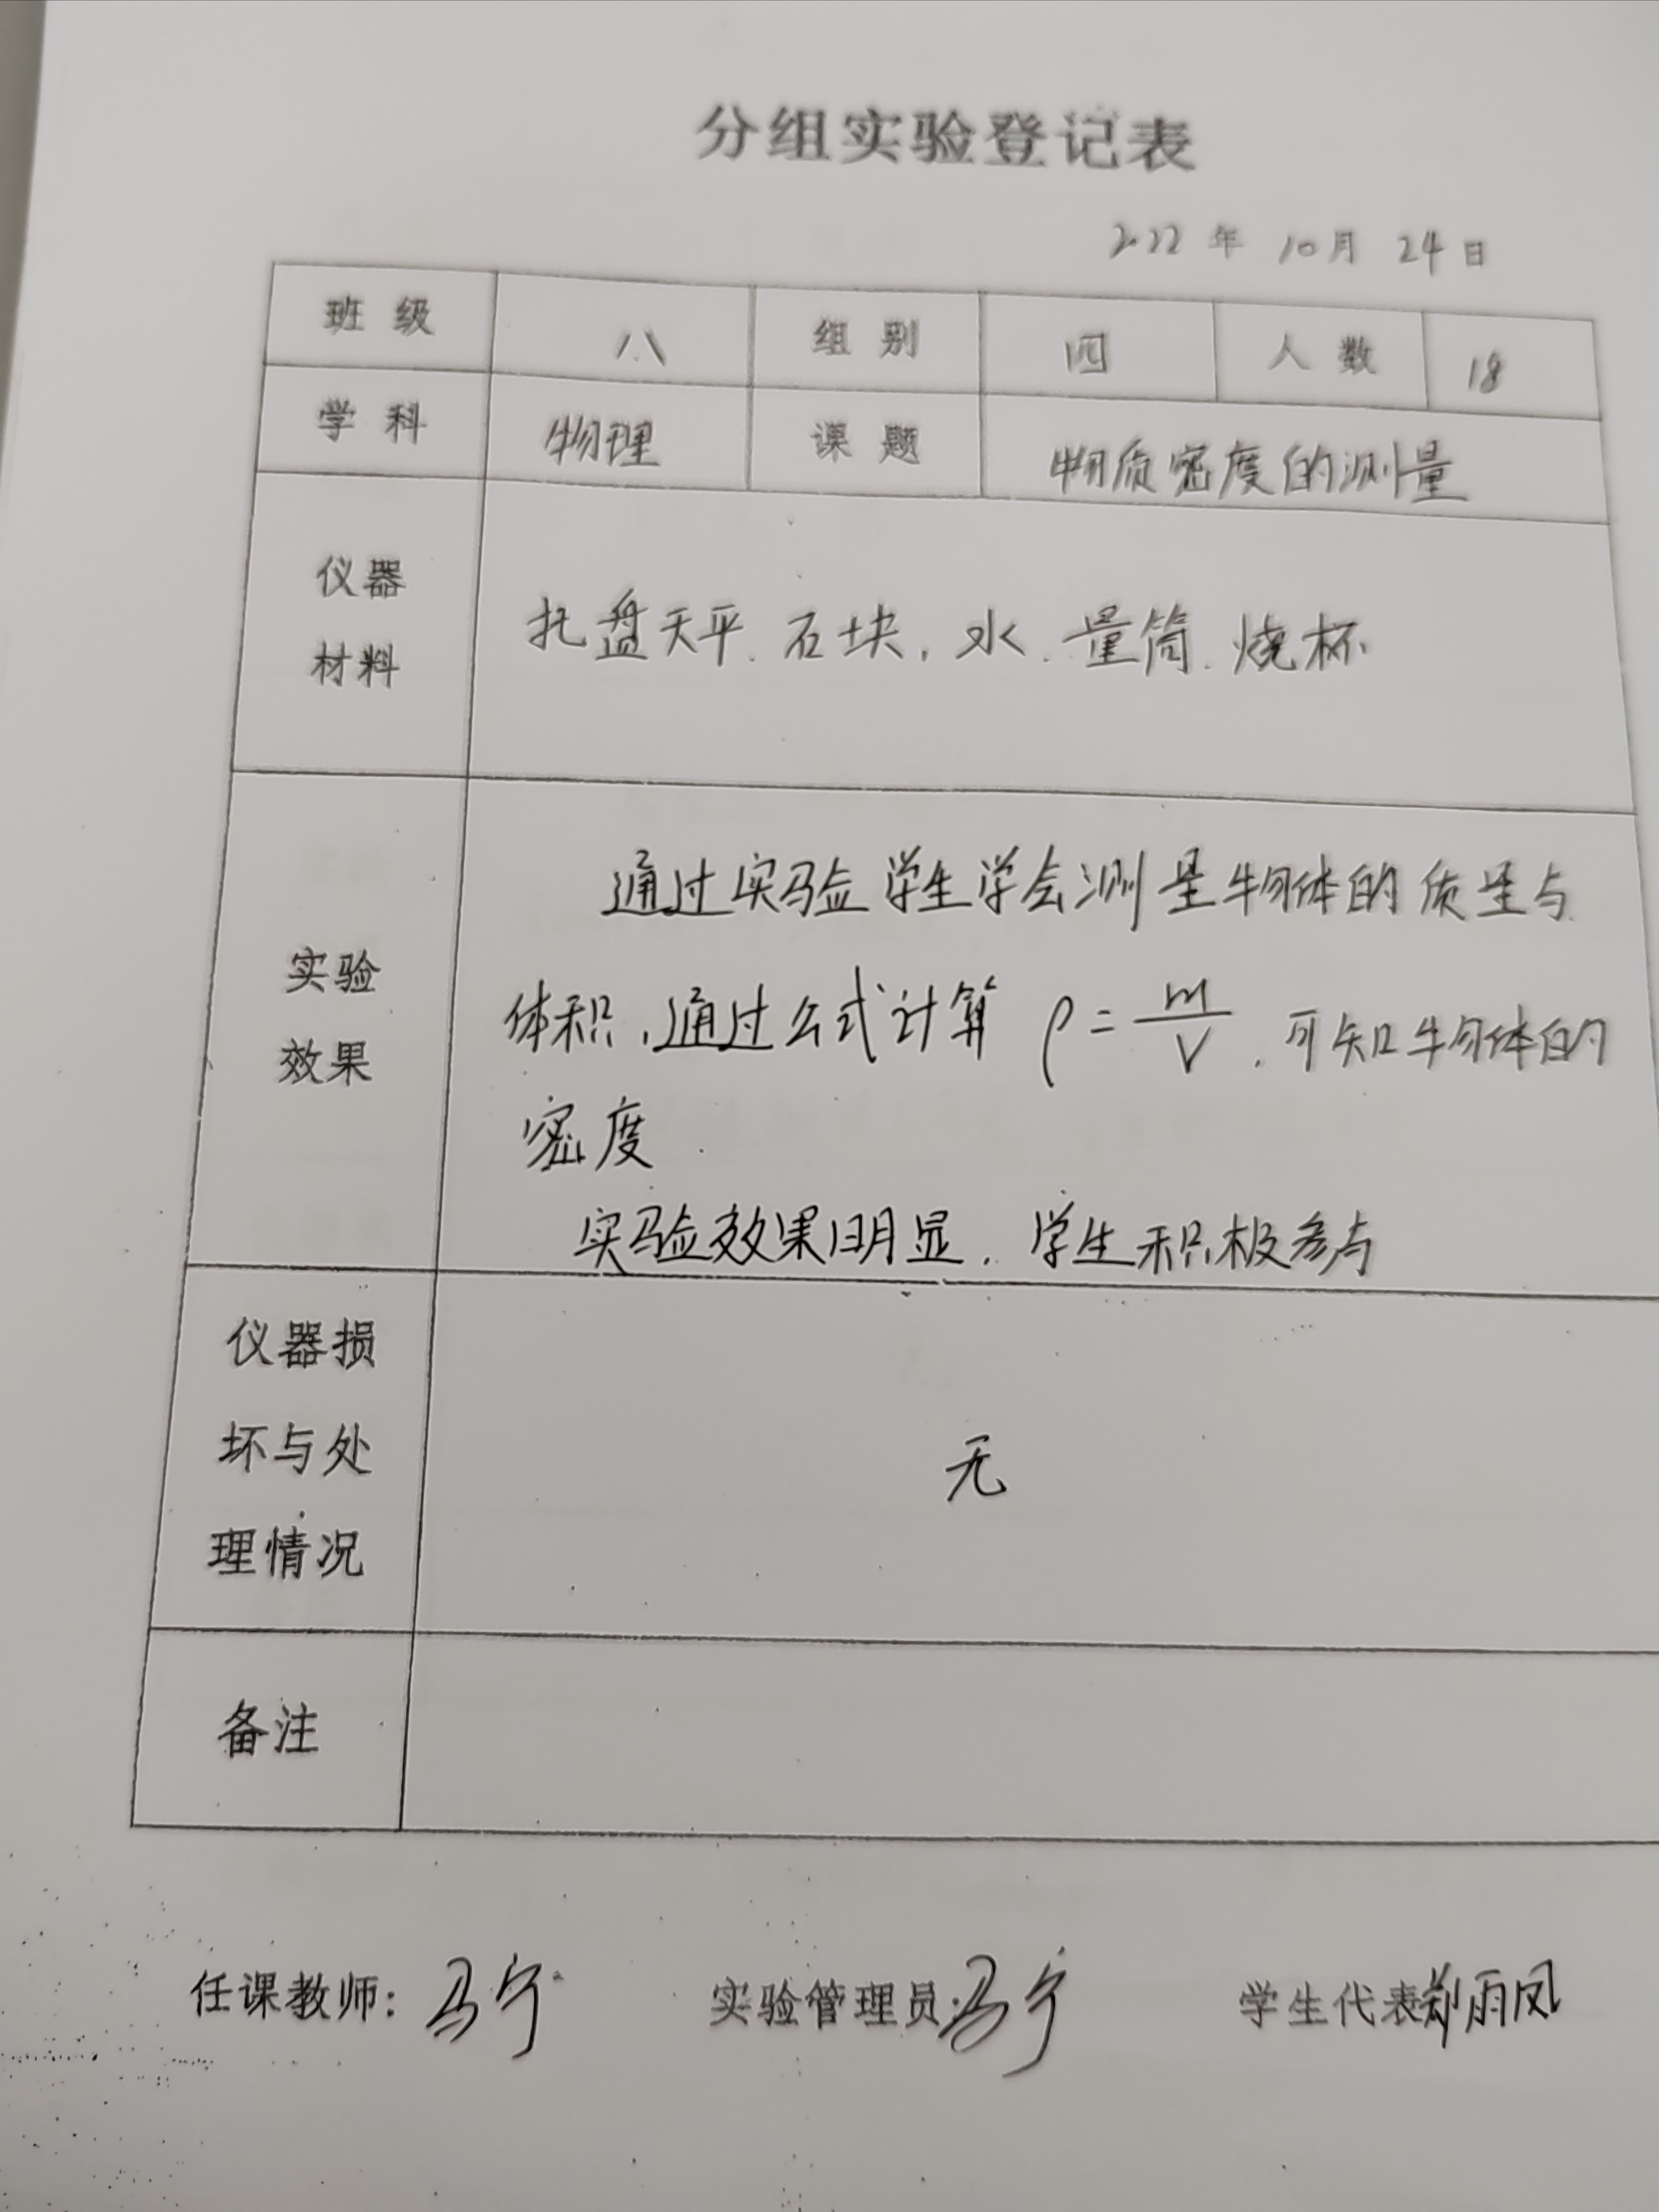 分组实验登记表
2022 年 10月 24日
班级 八 组别 四 人数 18
学科 物理 课题 物质密度的测量
仪器
材料
托盘天平、石块、水、量筒、烧杯
实验
效果
通过实验学生学会测量物体的质量与
体积,通过公式计算 ρ=m/V,可知物体的
密度.
实验效果明显,学生积极参与
仪器损
坏与处
理情况
无
备注
任课教师:马宁 实验管理员:马宁 学生代表郑雨凤